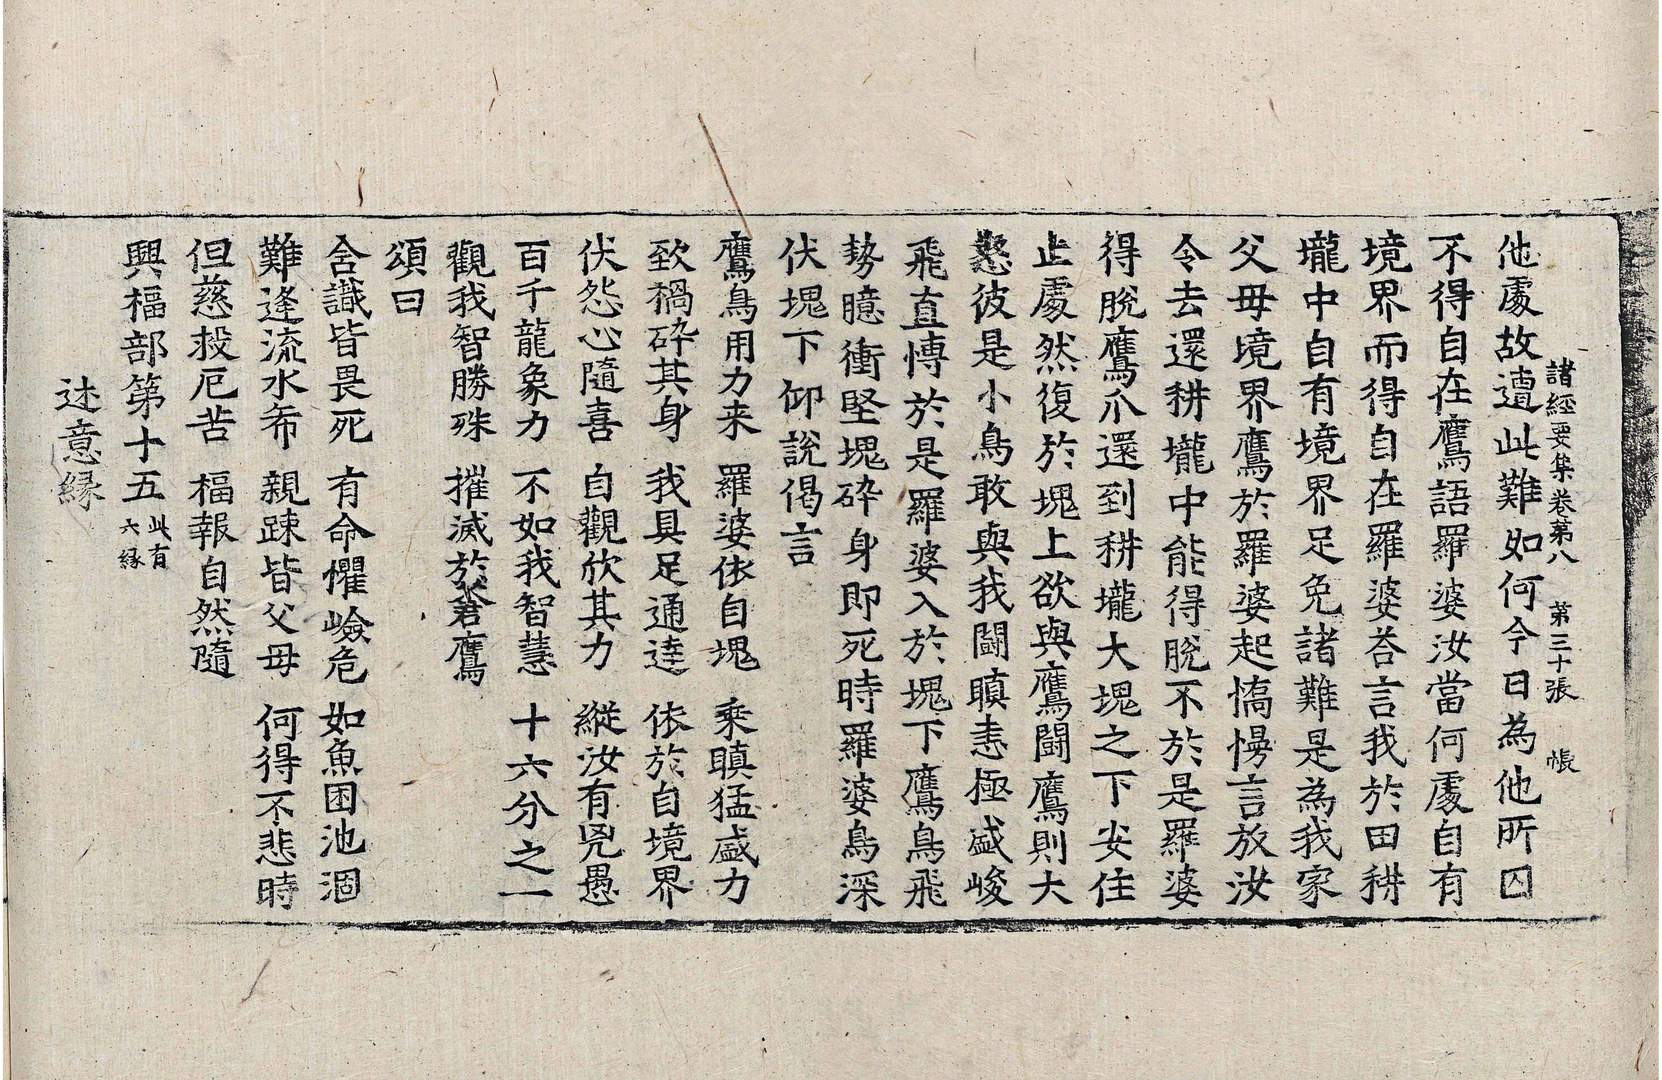 諸經要集卷第八　第三十張　悵
他處故遭此難如何今日為他所囚
不得自在鷹語羅婆汝當何處自有
境界而得自在羅婆荅言我於田耕
壠中自有境界足免諸難是為我家
父母境界鷹於羅婆起憍慢言放汝
令去還耕壠中能得脫不於是羅婆
得脫鷹爪還到耕壠大塊之下安住
止處然復於塊上欲與鷹鬪鷹則大
怒彼是小鳥敢與我鬪瞋恚極盛峻
飛直愽於是羅婆入於塊下鷹鳥飛
勢臆衝堅塊碎身即死時羅婆鳥深
伏塊下仰說偈言
鷹鳥用力来　羅婆依自塊　乘瞋猛盛力
致禍碎其身　我具足通達　依於自境界
伏怨心隨喜　自觀欣其力　縱汝有兇愚
百千龍象力　不如我智慧　十六分之一
觀我智勝殊　摧滅於蒼鷹
頌曰
含識皆畏死　有命懼嶮危　如魚困池涸
難逢流水希　親踈皆父母　何得不悲時
但慈救厄苦　福報自然隨
興福部第十五此有六緣
述意緣